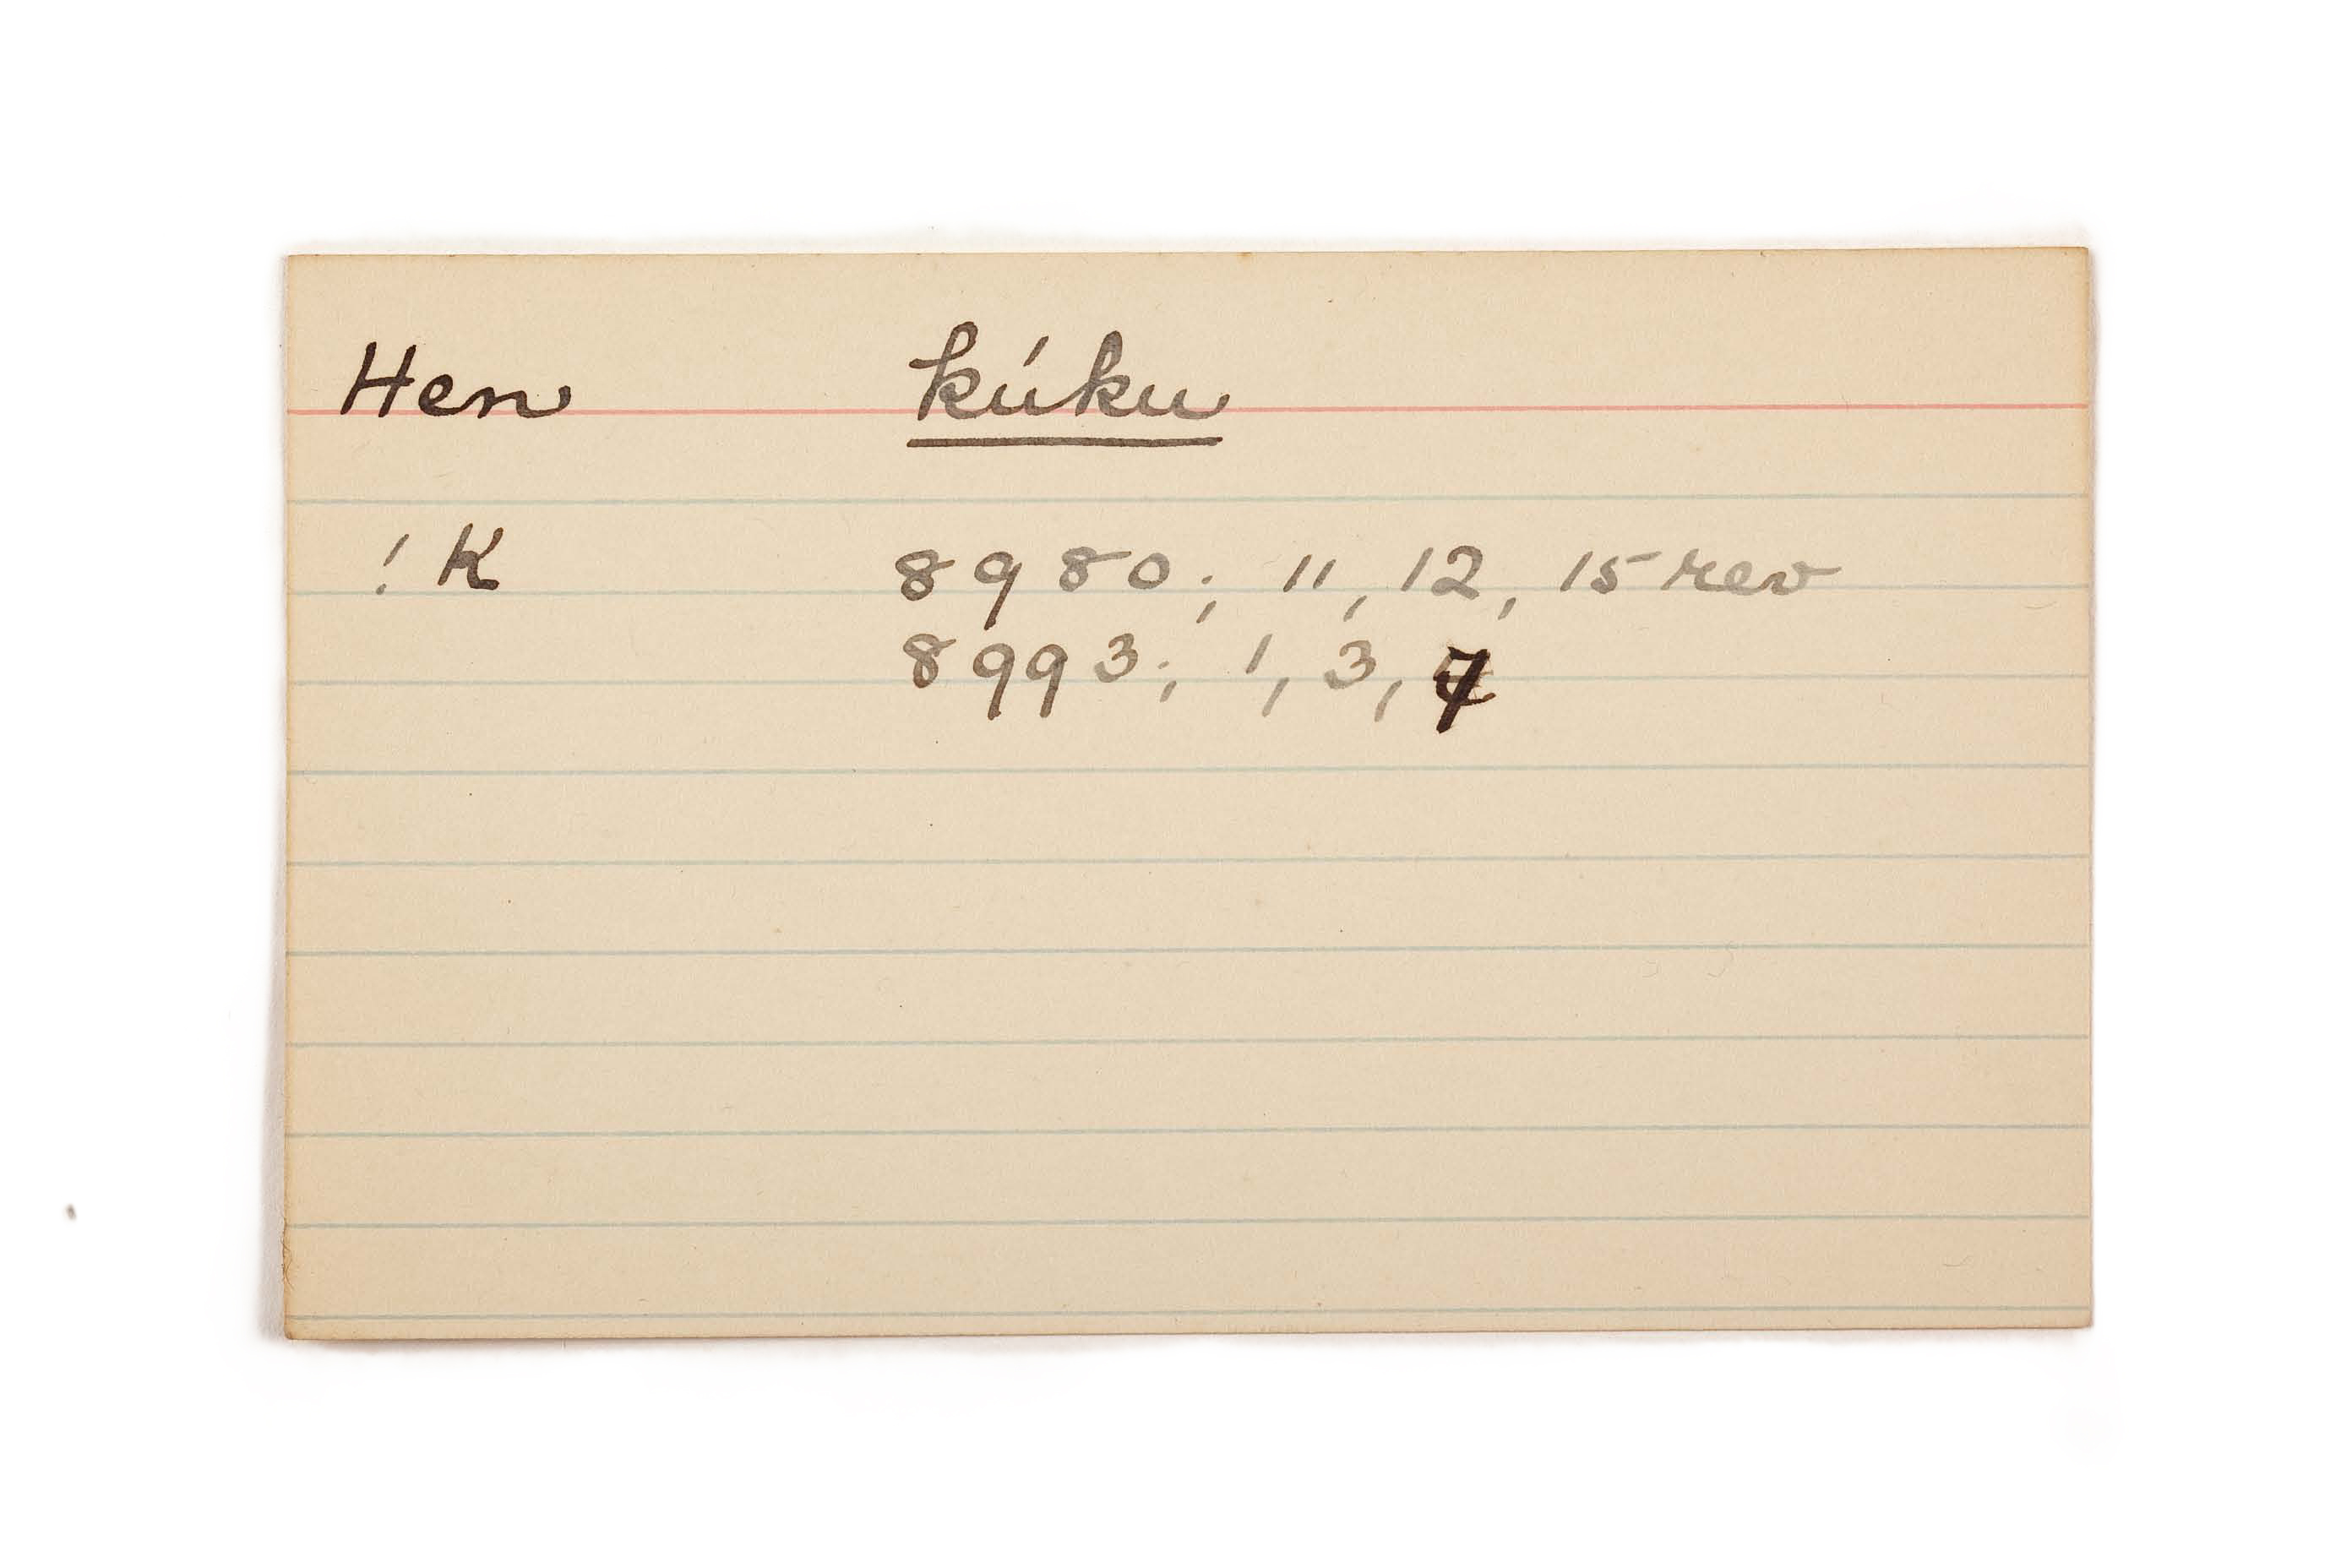 Hen kúku
!K 8980; 11, 12, 15 rev
8993; 1, 3, 7